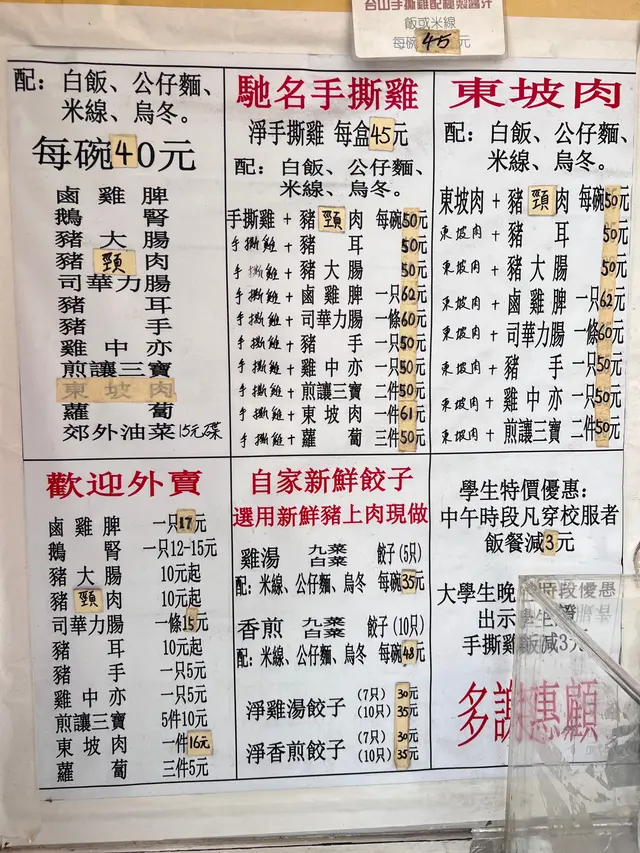 台山手撕雞配極殼醬汁
飯或米線
每碗45元
配：白飯、公仔麵、
米線、烏冬。
每碗40元
鹵雞脾
鵝腎
豬大腸
豬頸肉
司華力腸
豬耳
豬手
雞中亦
煎讓三寶
東坡肉
蘿蔔
郊外油菜15元碟
馳名手撕雞
淨手撕雞 每盒45元
配：白飯、公仔麵、
米線、烏冬。
手撕雞+豬頸肉 每碗50元
手撕雞+豬耳 50元
手撕雞+豬大腸 50元
手撕雞+鹵雞脾 一只62元
手撕雞+司華力腸 一條60元
手撕雞+豬手 一只50元
手撕雞+雞中亦 一只50元
手撕雞+煎讓三寶 二件50元
手撕雞+東坡肉 一件61元
手撕雞+蘿蔔 三件50元
東坡肉
配：白飯、公仔麵、
米線、烏冬。
東坡肉+豬頸肉 每碗50元
東坡肉+豬耳 50元
東坡肉+豬大腸 50元
東坡肉+鹵雞脾 一只62元
東坡肉+司華力腸 一條60元
東坡肉+豬手 一只50元
東坡肉+雞中亦 一只50元
東坡肉+煎讓三寶 二件50元
歡迎外賣
鹵雞脾 一只17元
鵝腎 一只12-15元
豬大腸 10元起
豬頸肉 10元起
司華力腸 一條15元
豬耳 10元起
豬手 一只5元
雞中亦 一只5元
煎讓三寶 5件10元
東坡肉 一件16元
蘿蔔 三件5元
自家新鮮餃子
選用新鮮豬上肉現做
雞湯 九菜 白菜 餃子(5只)
配：米線、公仔麵、烏冬 每碗35元
香煎 九菜 白菜 餃子(10只)
配：米線、公仔麵、烏冬 每碗48元
淨雞湯餃子 (7只) 30元
(10只) 35元
淨香煎餃子 (7只) 30元
(10只) 35元
學生特價優惠：
中午時段凡穿校服者
飯餐減3元
大學生晚市時段優惠
出示學生證
手撕雞飯減3元
多謝惠顧